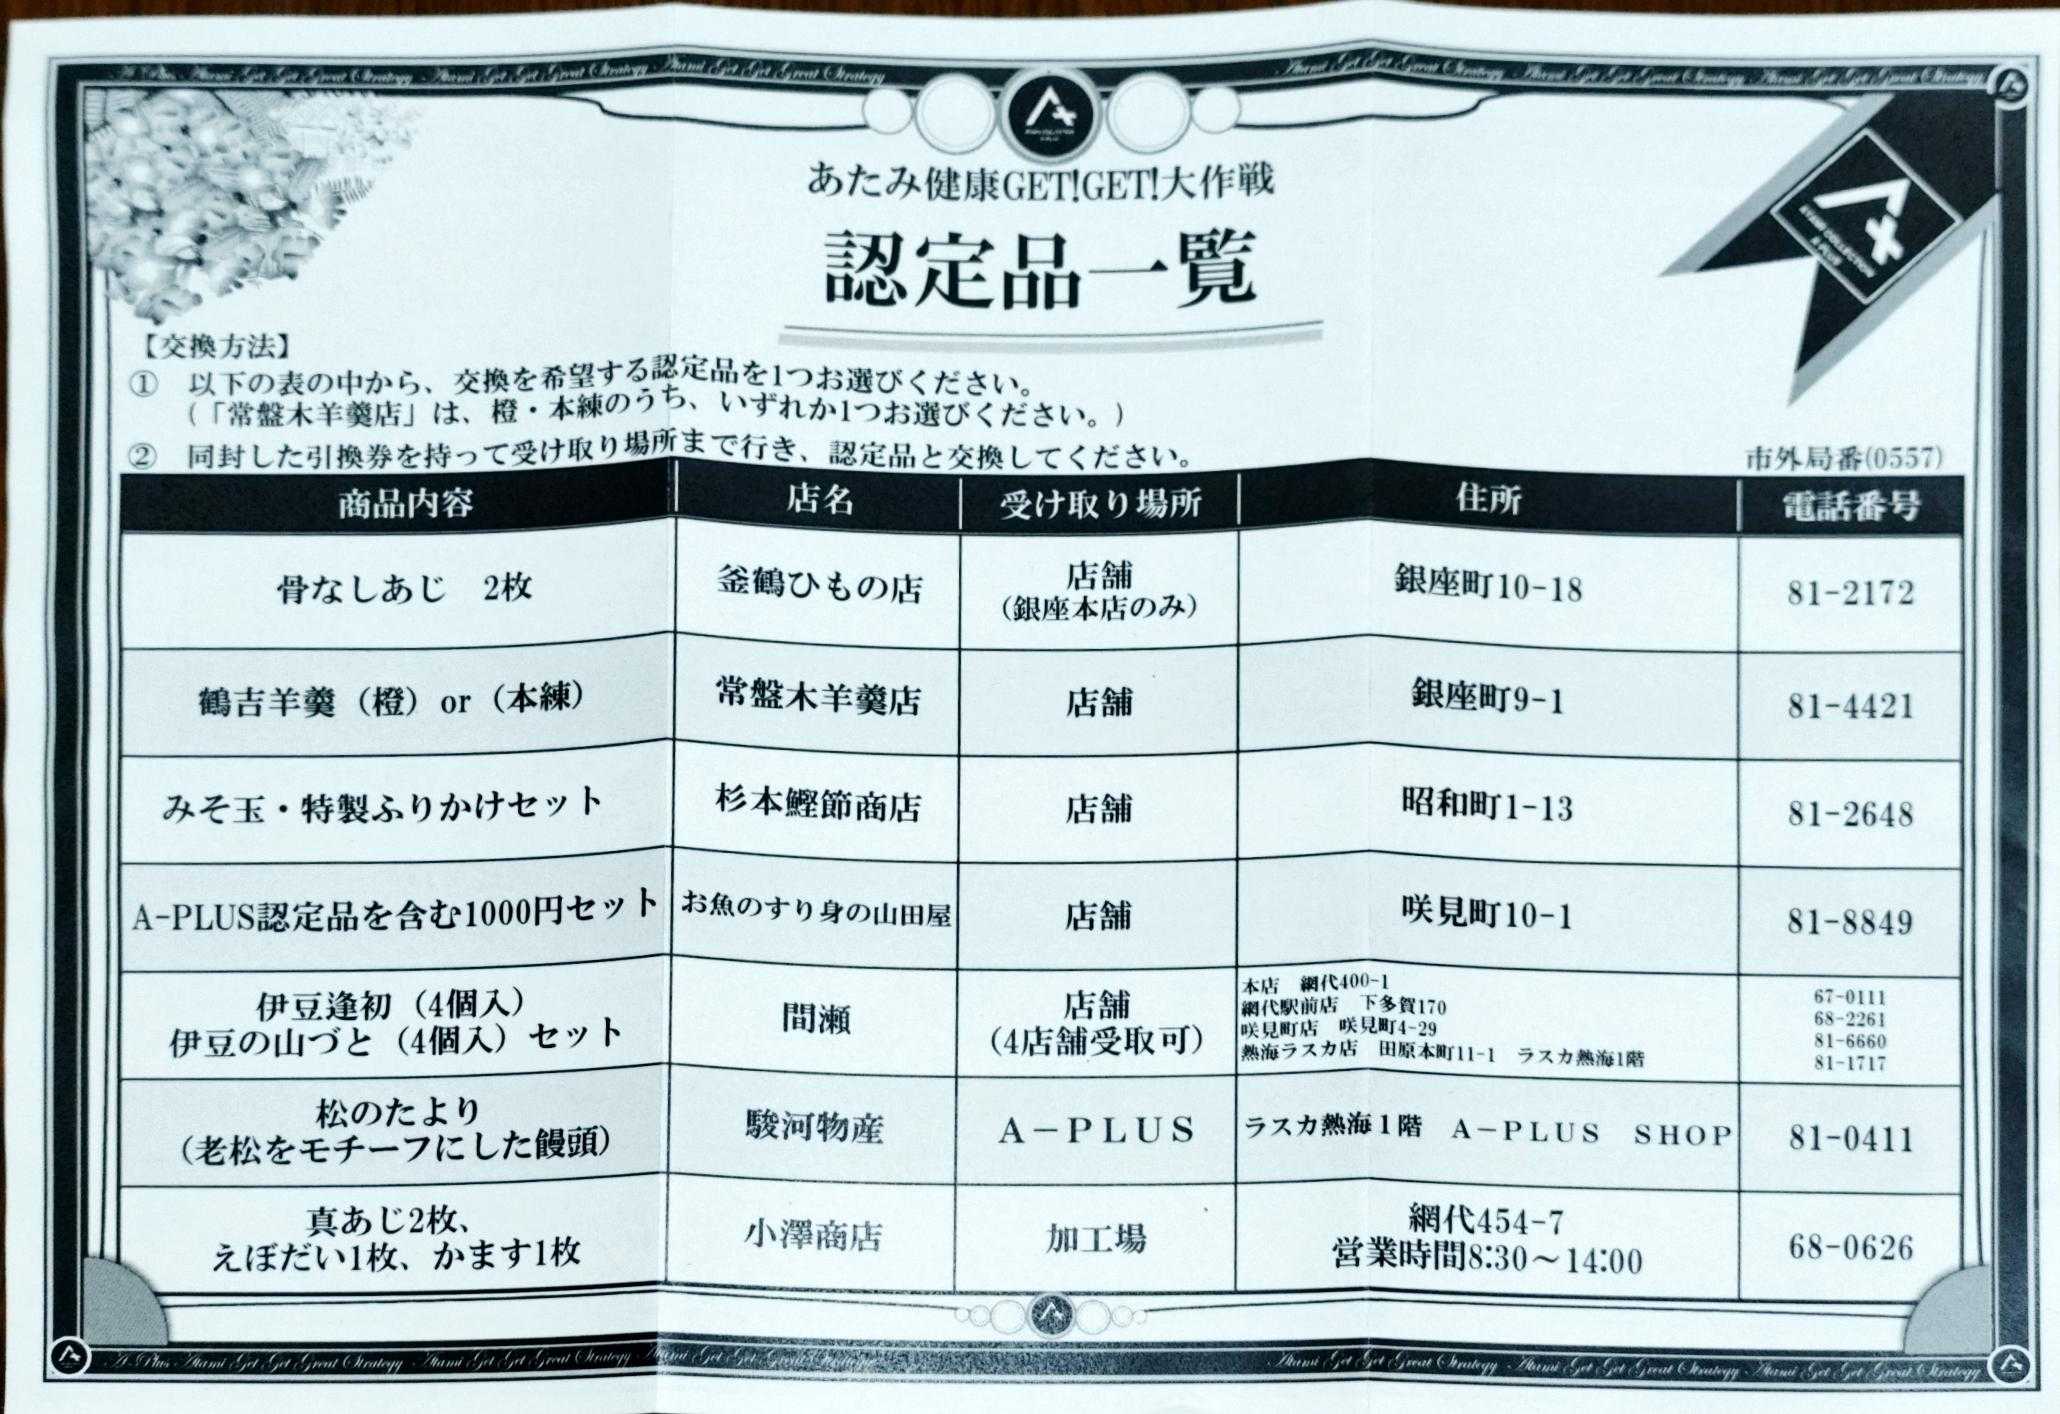 あたみ健康GET!GET!大作戦
認定品一覧
【交換方法】
① 以下の表の中から、交換を希望する認定品を1つお選びください。
（「常盤木羊羹店」は、橙・本練のうち、いずれか1つお選びください。）
② 同封した引換券を持って受け取り場所まで行き、認定品と交換してください。
市外局番(0557)
商品内容 店名 受け取り場所 住所 電話番号
骨なしあじ 2枚 釜鶴ひもの店 店舗 銀座町10-18 81-2172
（銀座本店のみ）
鶴吉羊羹（橙）or（本練） 常盤木羊羹店 店舗 銀座町9-1 81-4421
みそ玉・特製ふりかけセット 杉本鰹節商店 店舗 昭和町1-13 81-2648
A-PLUS認定品を含む1000円セット お魚のすり身の山田屋 店舗 咲見町10-1 81-8849
伊豆逢初（4個入）
伊豆の山づと（4個入）セット
間瀬
店舗
（4店舗受取可）
本店 網代400-1 67-0111
網代駅前店 下多賀170 68-2261
咲見町店 咲見町4-29 81-6660
熱海ラスカ店 田原本町11-1 ラスカ熱海1階 81-1717
松のたより
（老松をモチーフにした饅頭）
駿河物産 A－PLUS ラスカ熱海1階 A－PLUS SHOP 81-0411
真あじ2枚、
えぼだい1枚、かます1枚
小澤商店 加工場
網代454-7
営業時間8:30～14:00
68-0626